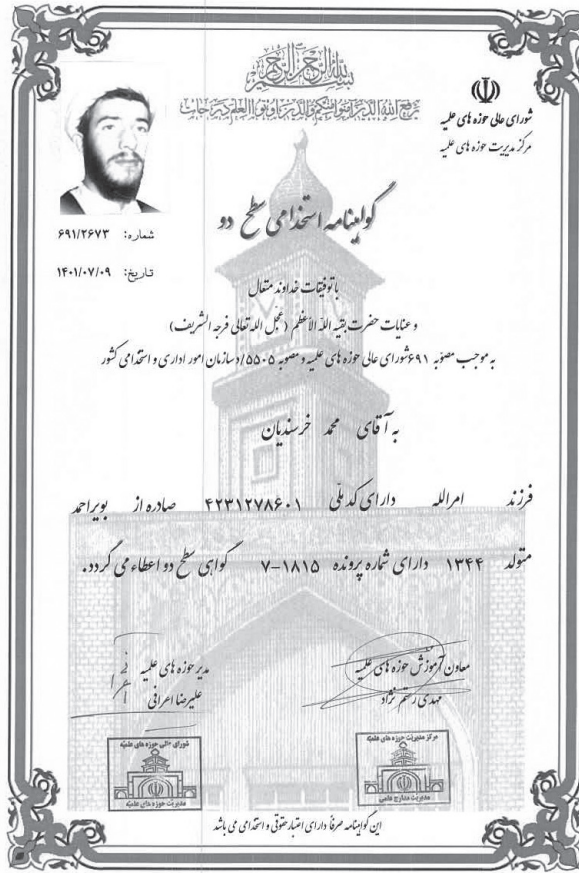 بسم الله الرحمن الرحیم
یرفع الله الذین آمنوا منکم والذین اوتوا العلم درجات
شورای عالی حوزه های علمیه
مرکز مدیریت حوزه های علمیه
گواهینامه استخدامی سطح دو
شماره: ۶۹۱/۲۶۷۳
تاریخ: ۱۴۰۱/۰۷/۰۹
با توفیقات خداوند متعال
و عنایات حضرت بقیه الله الأعظم (عجل الله تعالی فرجه الشریف)
به موجب مصوبه ۶۹۱ شورای عالی حوزه های علمیه و مصوبه ۵۵۰۵/د سازمان امور اداری و استخدامی کشور
به آقای محمد خرسندیان
فرزند امرالله دارای کد ملی ۴۲۳۱۲۷۸۶۰۱ صادره از بویراحمد
متولد ۱۳۴۴ دارای شماره پرونده ۷-۱۸۱۵ گواهی سطح دو اعطاء می گردد.
معاون آموزش حوزه های علمیه
مهدی رستم نژاد
مدیر حوزه های علمیه
علیرضا اعرافی
مرکز مدیریت حوزه های علمیه
مدیریت مدارج علمی
شورای عالی حوزه های علمیه
مدیریت حوزه های علمیه
این گواهینامه صرفاً دارای اعتبار حقوقی و استخدامی می باشد